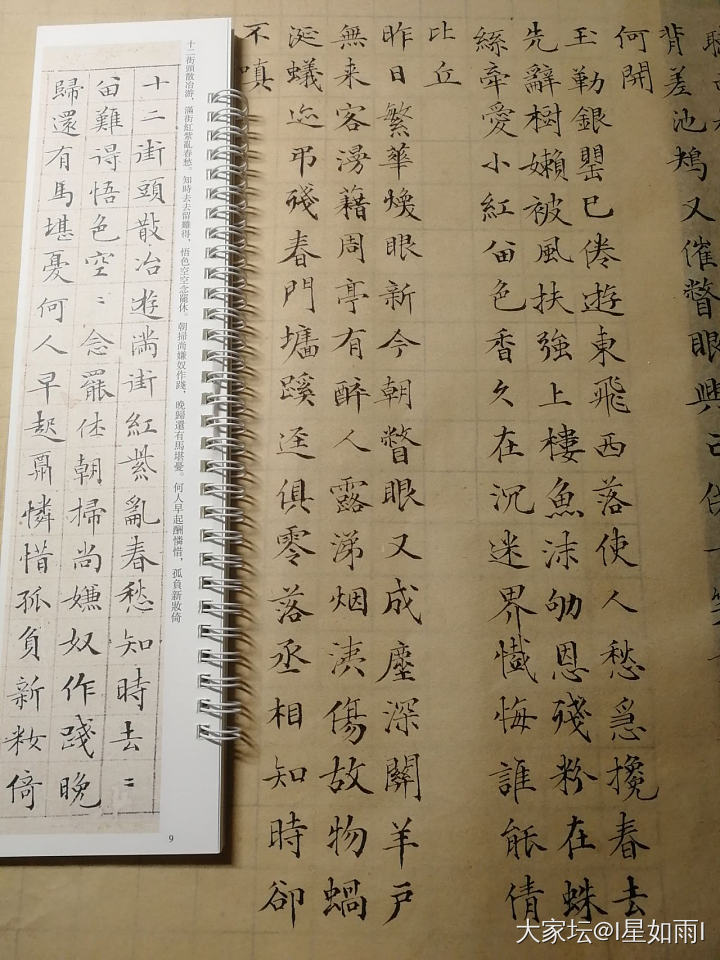 背差池鴂又催瞥眼興已
何開
玉勒銀罌已倦遊東飛西落使人愁急攙春去
先辭樹嬾被風扶強上樓魚沫劬恩殘粉在蛛
絲牽愛小紅留色香久在沉迷界懺悔誰能倩
比丘
昨日繁華煥眼新今朝瞥眼又成塵深關羊戶
無来客漫藉周亭有醉人露涕烟洟傷故物蝸
涎蟻迹弔殘春門墻蹊逕俱零落丞相知時卻
不嗔
十二街頭散冶游，滿街紅紫亂春愁。知時去去留難得，悟色空空念罷休。朝掃尚嫌奴作踐，晚歸還有馬堪憂。何人早起酬憐惜，孤負新妝倚
十二街頭散冶遊滿街紅紫亂春愁知時去〻
留難得悟色空〻念罷休朝掃尚嫌奴作踐晚
歸還有馬堪憂何人早起酬憐惜孤負新妝倚
9
大家坛@I星如雨I